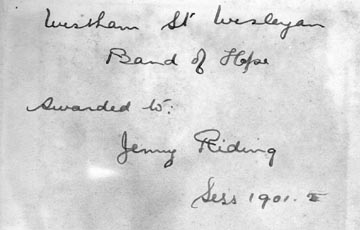 Westham St Wesleyan
Band of Hope
Awarded to:
Jenny Riding
Sess 1901. 2